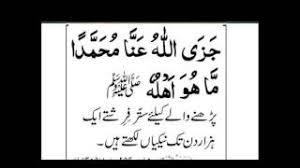 جَزَى اللهُ عَنَّا مُحَمَّدًا
مَّا هُوَ اَهْلُهٗ ﷺ
پڑھنے والے کیلئے ستّر فرشتے ایک
ہزار دن تک نیکیاں لکھتے ہیں۔